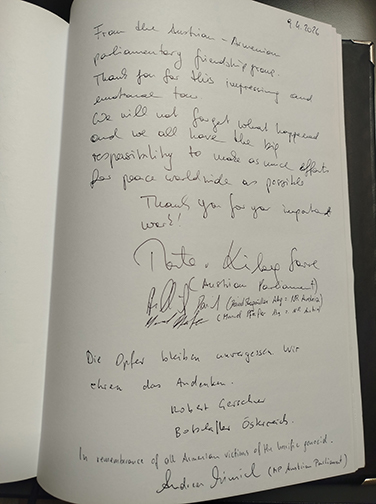 9.4.2024
From the Austrian - Armenian
parliamentary friendship group.
Thank you for this impressing and
emotional tour.
We will not forget what happened
and we all have the big
responsibility to make as much efforts
for peace worldwide as possible
Thank you for your important
work!
(Austrian Parliament)
Die Opfer bleiben unvergessen wir
ehren das Andenken.
Robert Gerschner
Botschafter Österreich.
In remembrance of all Armenian victims of the horrific genocid.
Andreas Minnich (MP Austrian Parliament)